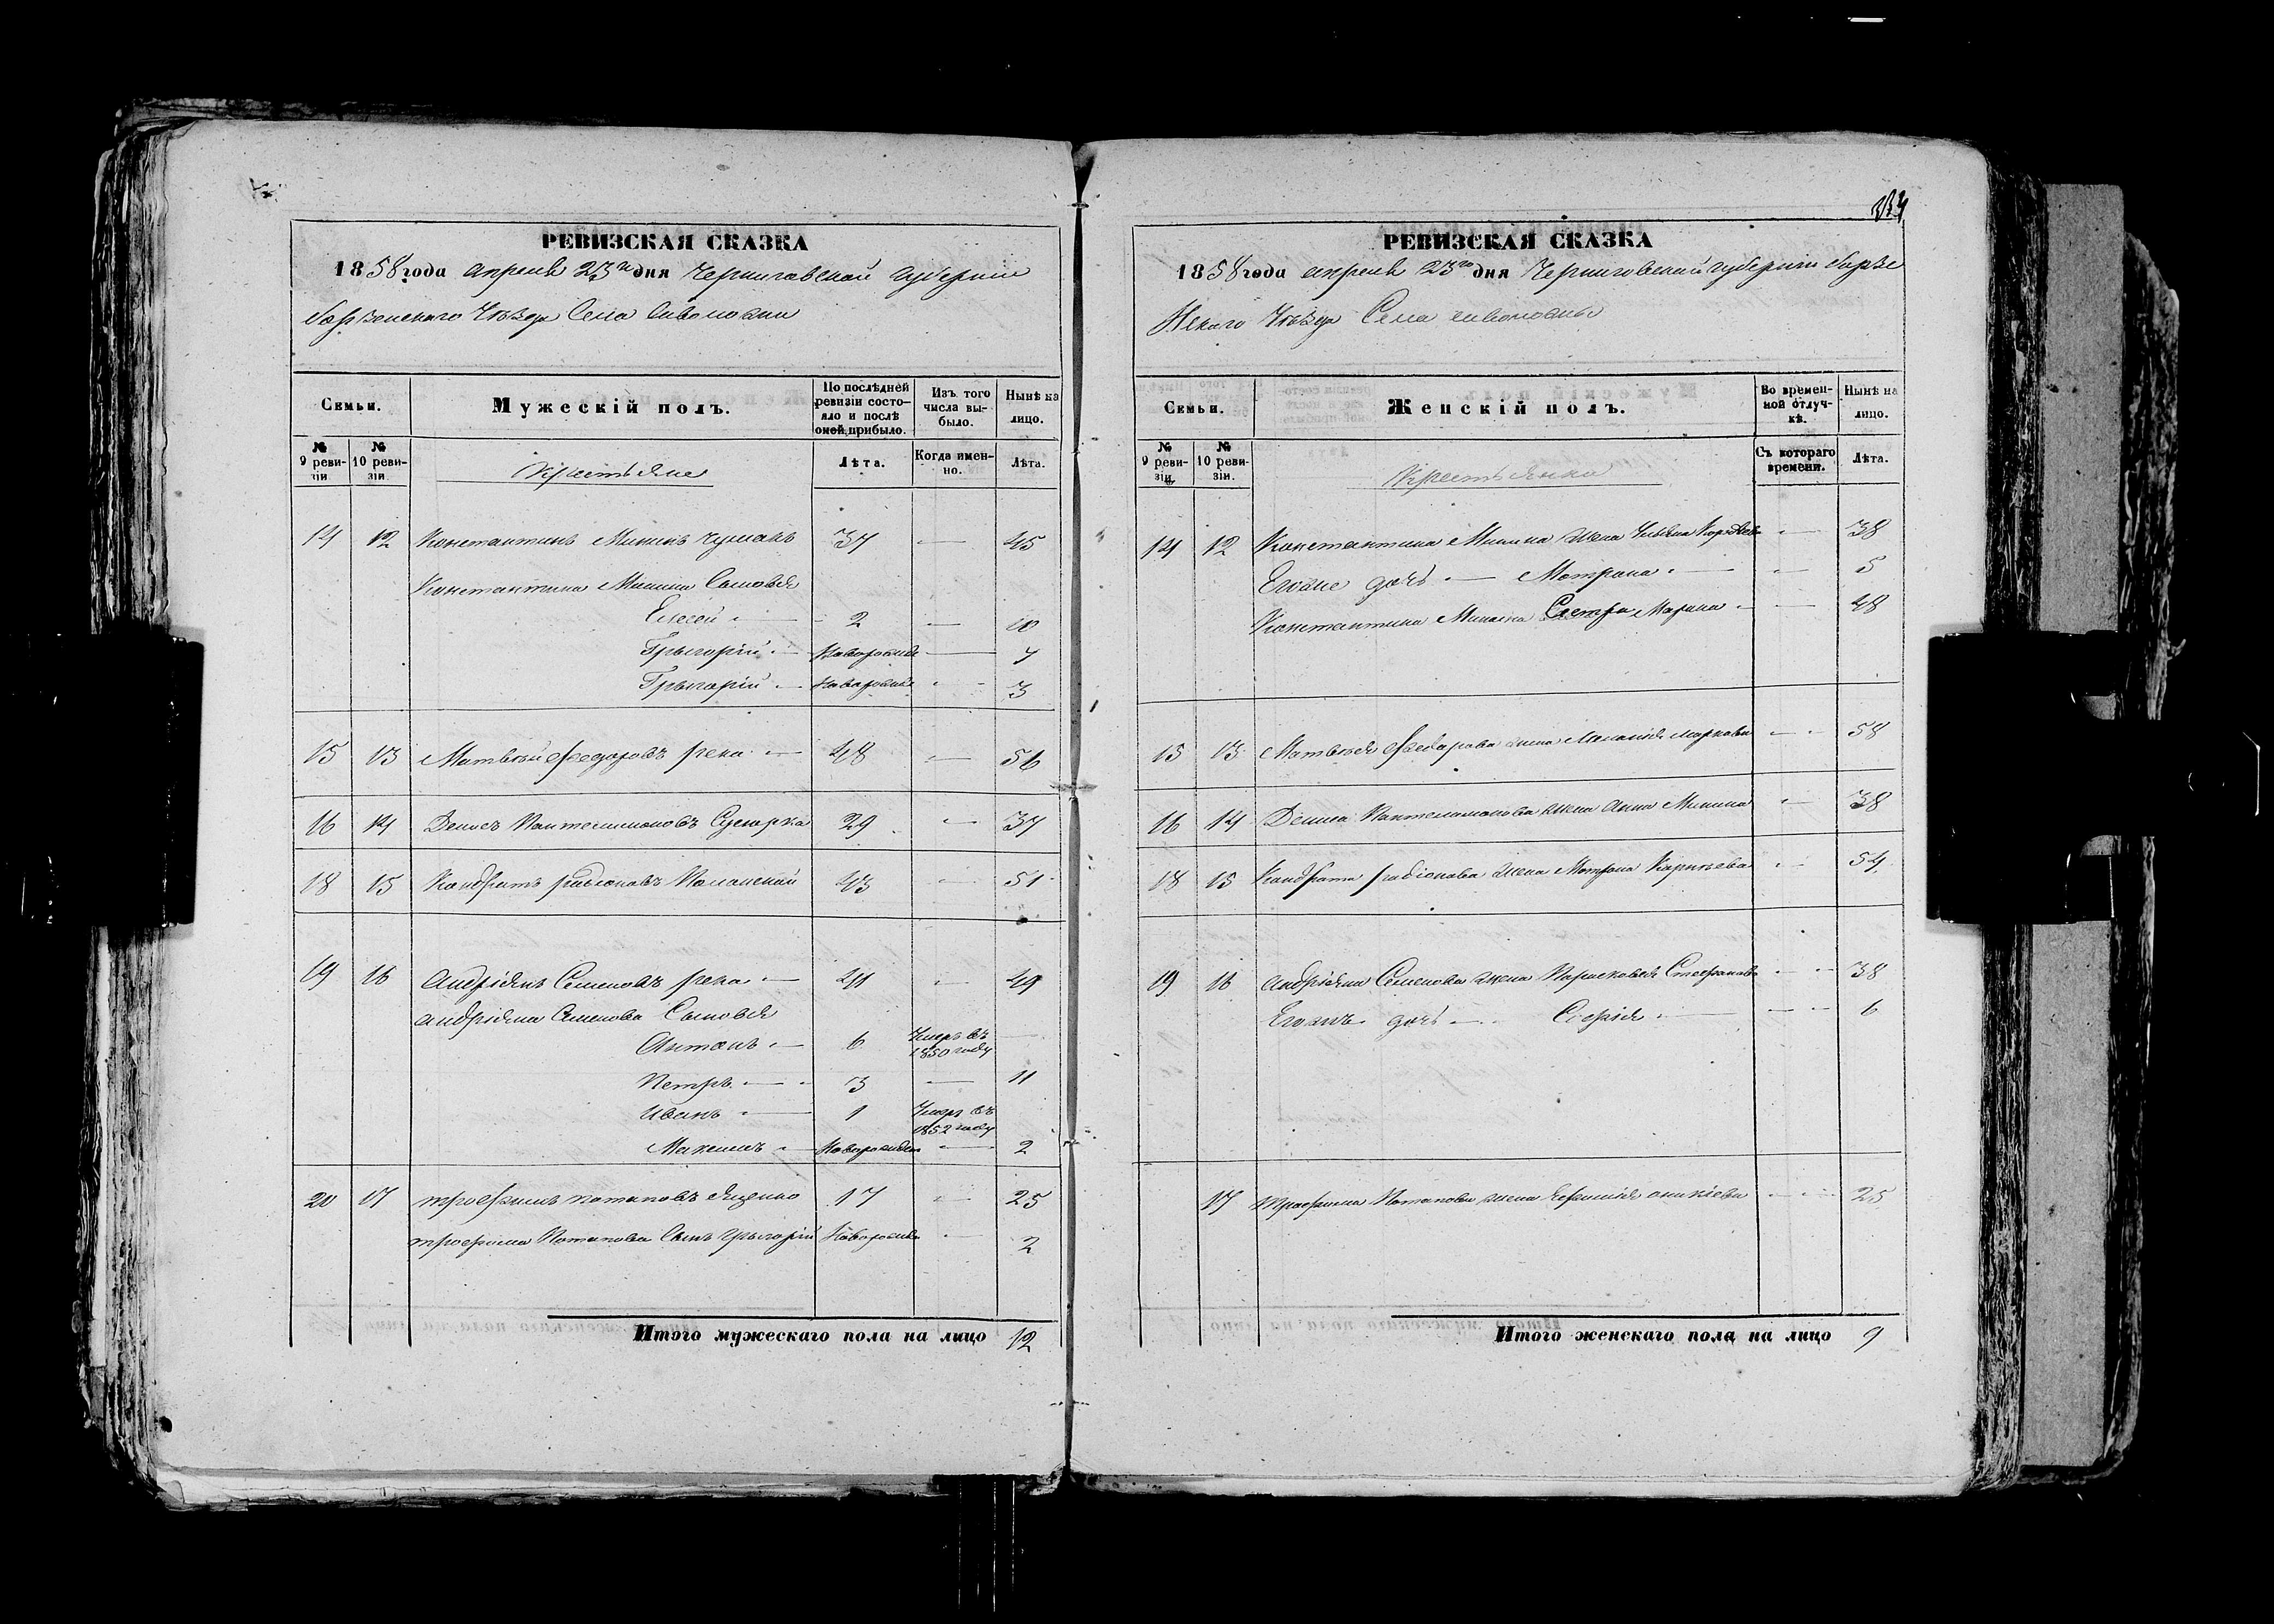 РЕВИЗСКАЯ СКАЗКА
1858 года апреля 23го дня Черниговской Губернии
борзенскаго Уѣзда Села Сиволожи
Семьи.
Мужескій полъ.
По послѣдней ревизіи состояло и послѣ оной прибыло.
Изъ того числа выбыло.
Нынѣ на лицо.
№ 9 ревизіи
№ 10 ревизіи.
Крестьяне
Лѣта.
Когда именно.
Лѣта.
14 12 Константинъ Мининъ Чумакъ 37 — 45
Константина Минина Сыновья
Елесей — 2 — 10
Грыгорій — Новорожде — 7
Грыгорій — Новорожде — 3
15 13 Матвѣй Федоровъ река — 48 — 56
16 14 Денисъ Пантелимоновъ 29 — 37
18 15 Кондратъ радіоновъ 43 — 51
19 16 Андріянъ Семеновъ река — 41 — 49
Андріяна Семенова Сыновья
Антонъ — 6 Умеръ въ 1850 году —
Петръ — 3 — 11
Иванъ — 1 Умеръ въ 1852 году
Максимъ — Новорожден — 2
20 17 трофимъ потаповъ Яценко 17 — 25
трофима Потапова Сынъ Грыгорій Новорожде — 2
Итого мужескаго пола на лицо 12
РЕВИЗСКАЯ СКАЗКА
1858 года апреля 23го дня Черниговской губерніи борзе
Нскаго Уѣзда Села сиволожы
Семьи.
Женскій полъ.
Во временной отлучкѣ.
Нынѣ на лицо.
№ 9 ревизіи.
№ 10 ревизіи.
Крестьянки
Съ котораго времени.
Лѣта.
14 12 Константина Минина Жена Ульяна — 38
Егоже дочь — Мотрона — 5
Константина Минина Сестра Марина — 48
15 13 Матвѣя Федарова жена Маланія маркова — 58
16 14 Дениса Пантелимонова жена Анна Минина — 38
18 15 Кандрата радіонова Жена Мотрона Карнѣева — 54
19 16 Андріяна Семенова жена Парасковія Стефанова — 38
Егожъ дочь — Софія — 6
17 Трофима Потапова жена Ефимія оникіева — 25
Итого женскаго пола на лицо 9